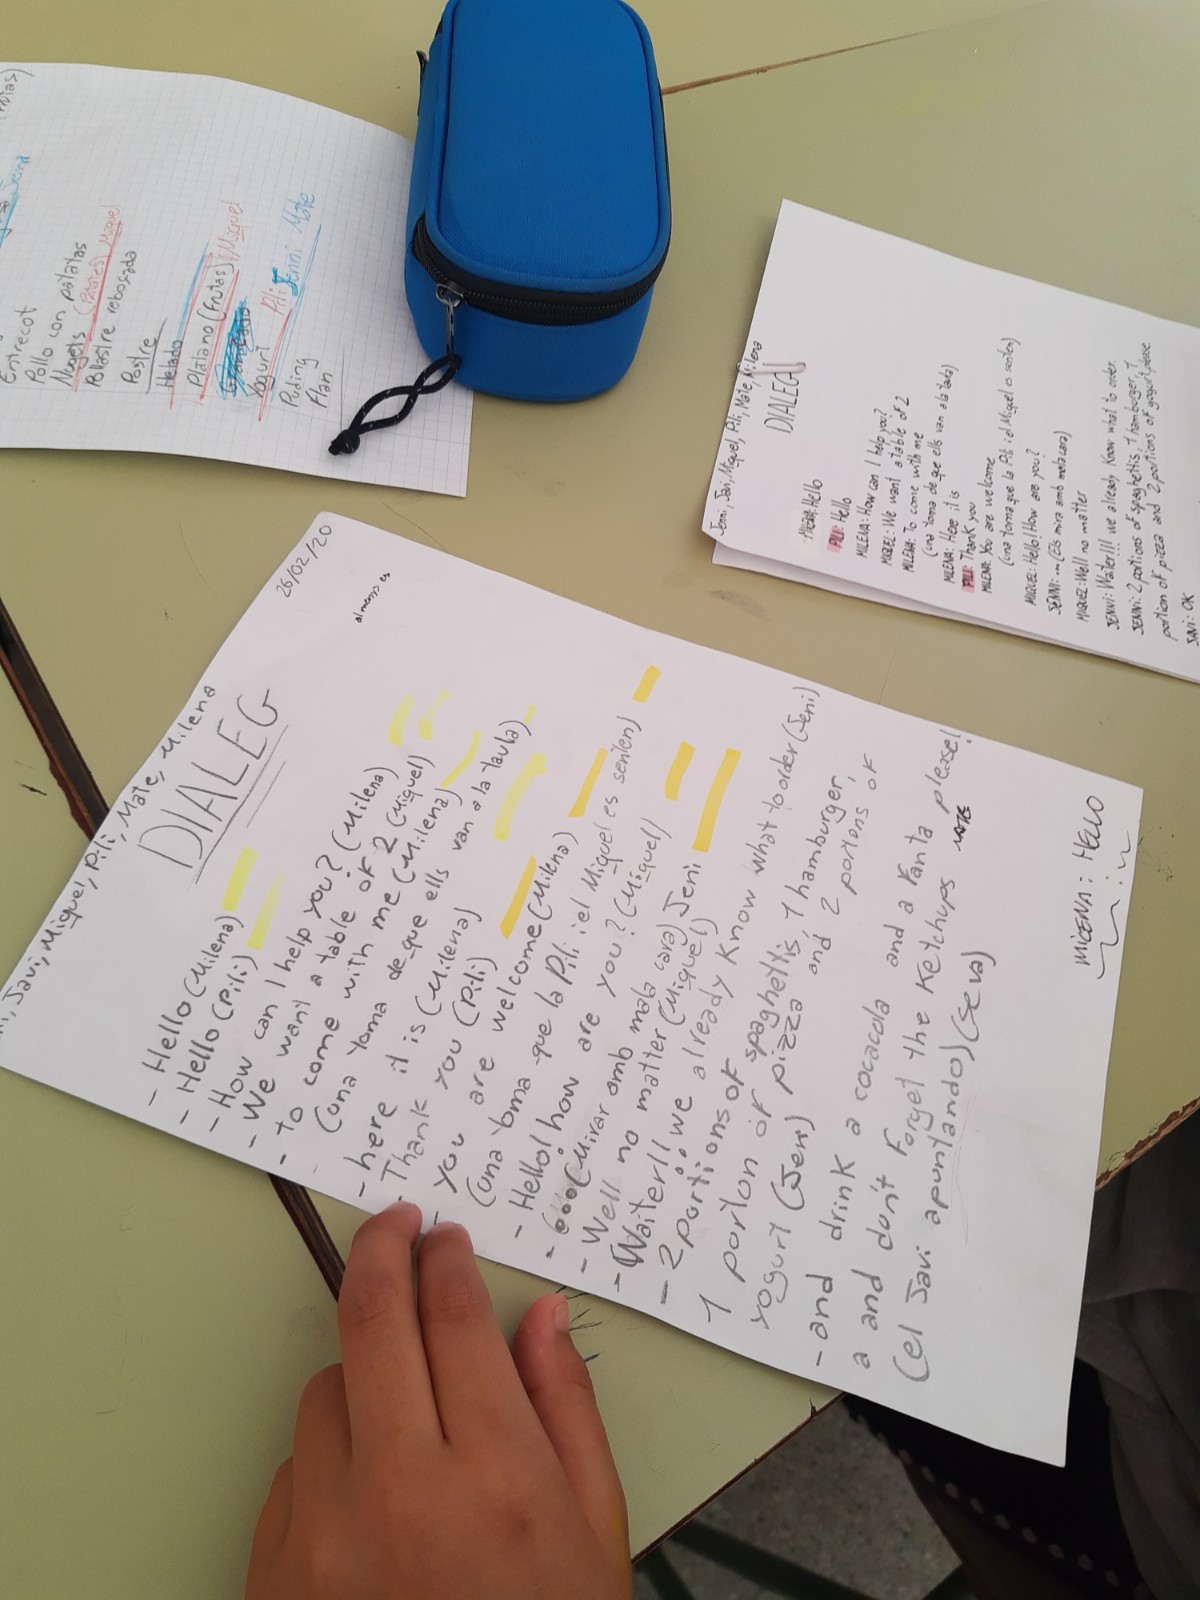 Javi, Miquel, Pili, Mate, Milena
DIALEG
26/02/20
almenys es
- Hello (Milena)
- Hello (Pili)
- How can I help you? (Milena)
- We want a table of 2 (Miquel)
- to come with me (Milena)
(una toma de que ells van a la taula)
- here it is (Milena)
- Thank you (Pili)
- you are welcome (Milena)
(una toma que la Pili i el Miquel es senten)
- Hello! how are you? (Miquel)
- ... (Mirar amb mala cara) Jeni
- Well no matter (Miquel)
- Waiter!! we already know what to order (Jeni)
- 2 portions of spaghettis, 1 hamburger,
1 portion of pizza and 2 portions of
yogurt (Jeni)
- and drink a cocacola and a Fanta
a and don't forget the ketchups please!
(el Javi apuntando) (seva)
MILENA: HELLO
Jenni, Javi, Miquel, Pili, Mate, Milena
DIALEG
- MILENA: Hello
PILI: Hello
MILENA: How can I help you?
MIQUEL: We want a table of 2
MILENA: To come with me
(una toma de que ells van a la taula)
MILENA: Here it is
PILI: Thank you
MILENA: You are welcome
(una toma que la Pili i el Miquel es senten)
MIQUEL: Hello! How are you?
JENNI: ... (Ells mira amb mala cara)
MIQUEL: Well no matter
JENNI: Waiter!!! we already know what to order.
JENNI: 2 portions of spaghettis, 1 hamburger, 1
portion of pizza and 2 portions of yogurt, please
JAVI: OK
Entrecot
Pollo con patatas
Nuggets (Patates) Miquel
Pollastre rebosada
Postre
Helado
Platano (Frutas) Miquel
Yogurt Pili Jenni Mate
Puding
Flan